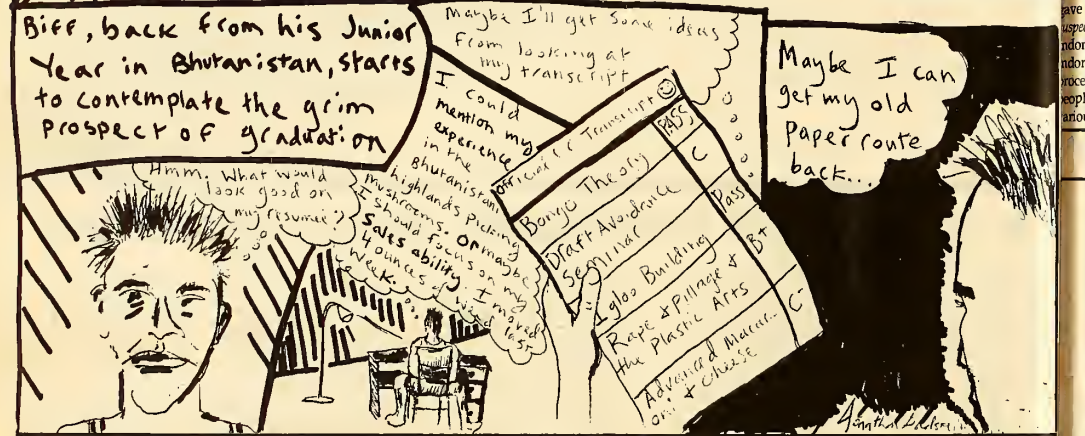 Biff, back from his Junior
Year in Bhutanistan, starts
to contemplate the grim
prospect of graduation
Hmm. What would
look good on
my resume?
I could
mention my
experience
in the
Bhutanistani
highlands picking
mushrooms. Or maybe
I should focus on my
Sales ability. I moved
4 ounces of weed last
week.
Maybe I'll get some ideas
from looking at
my transcript
Official Transcript
Bongo Theory PASS
Draft Avoidance
Seminar C
Igloo Building Pass
Rape & Pillage &
the Plastic Arts B+
Advanced Macar...
oni & cheese C-
Maybe I can
get my old
Paper route
back...
gave
uspec
ndon
ndon
proce
peopl
variou